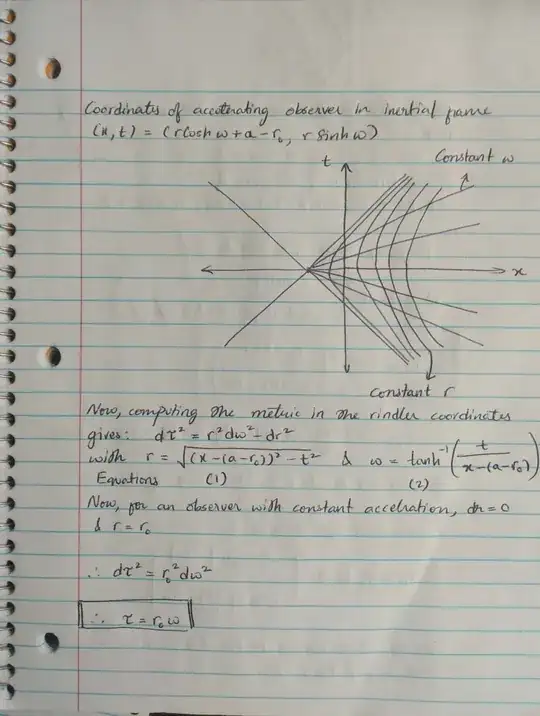 Coordinates of accelerating observer in inertial frame
(x, t) = (r cosh ω + a - r₀, r sinh ω)
Constant ω
t
x
Constant r
Now, computing the metric in the rindler coordinates
gives: dτ² = r²dω² - dr²
with r = √((x - (a - r₀))² - t²) & ω = tanh⁻¹(t / (x - (a - r₀)))
Equations (1) (2)
Now, for an observer with constant accelration, dr = 0
& r = r₀
∴ dτ² = r₀² dω²
∴ τ = r₀ ω